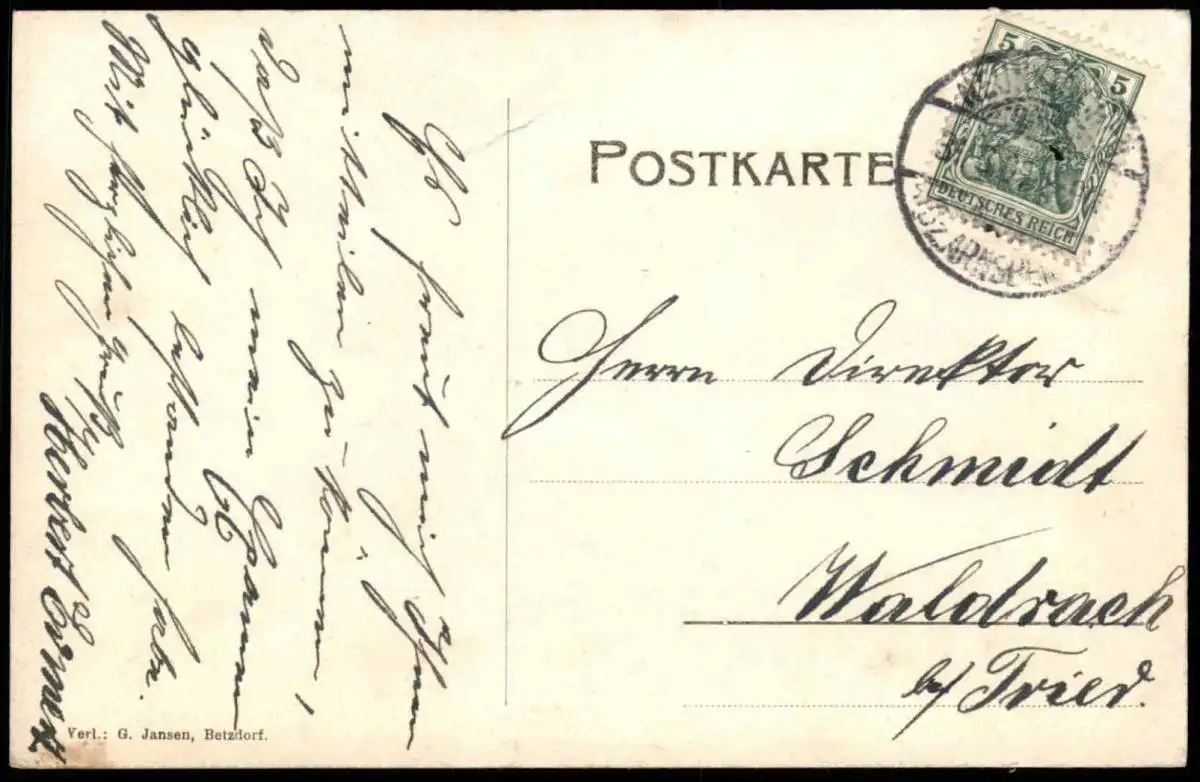 Es freut mich Ihnen
mitteilen zu können,
daß ich mein Examen
glücklich bestanden habe.
Mit herzlichen Grüßen
Herbert
POSTKARTE
5 5
DEUTSCHES REICH
Herrn Direktor
Schmidt
Waldrach
b/ Trier.
Verl.: G. Jansen, Betzdorf.